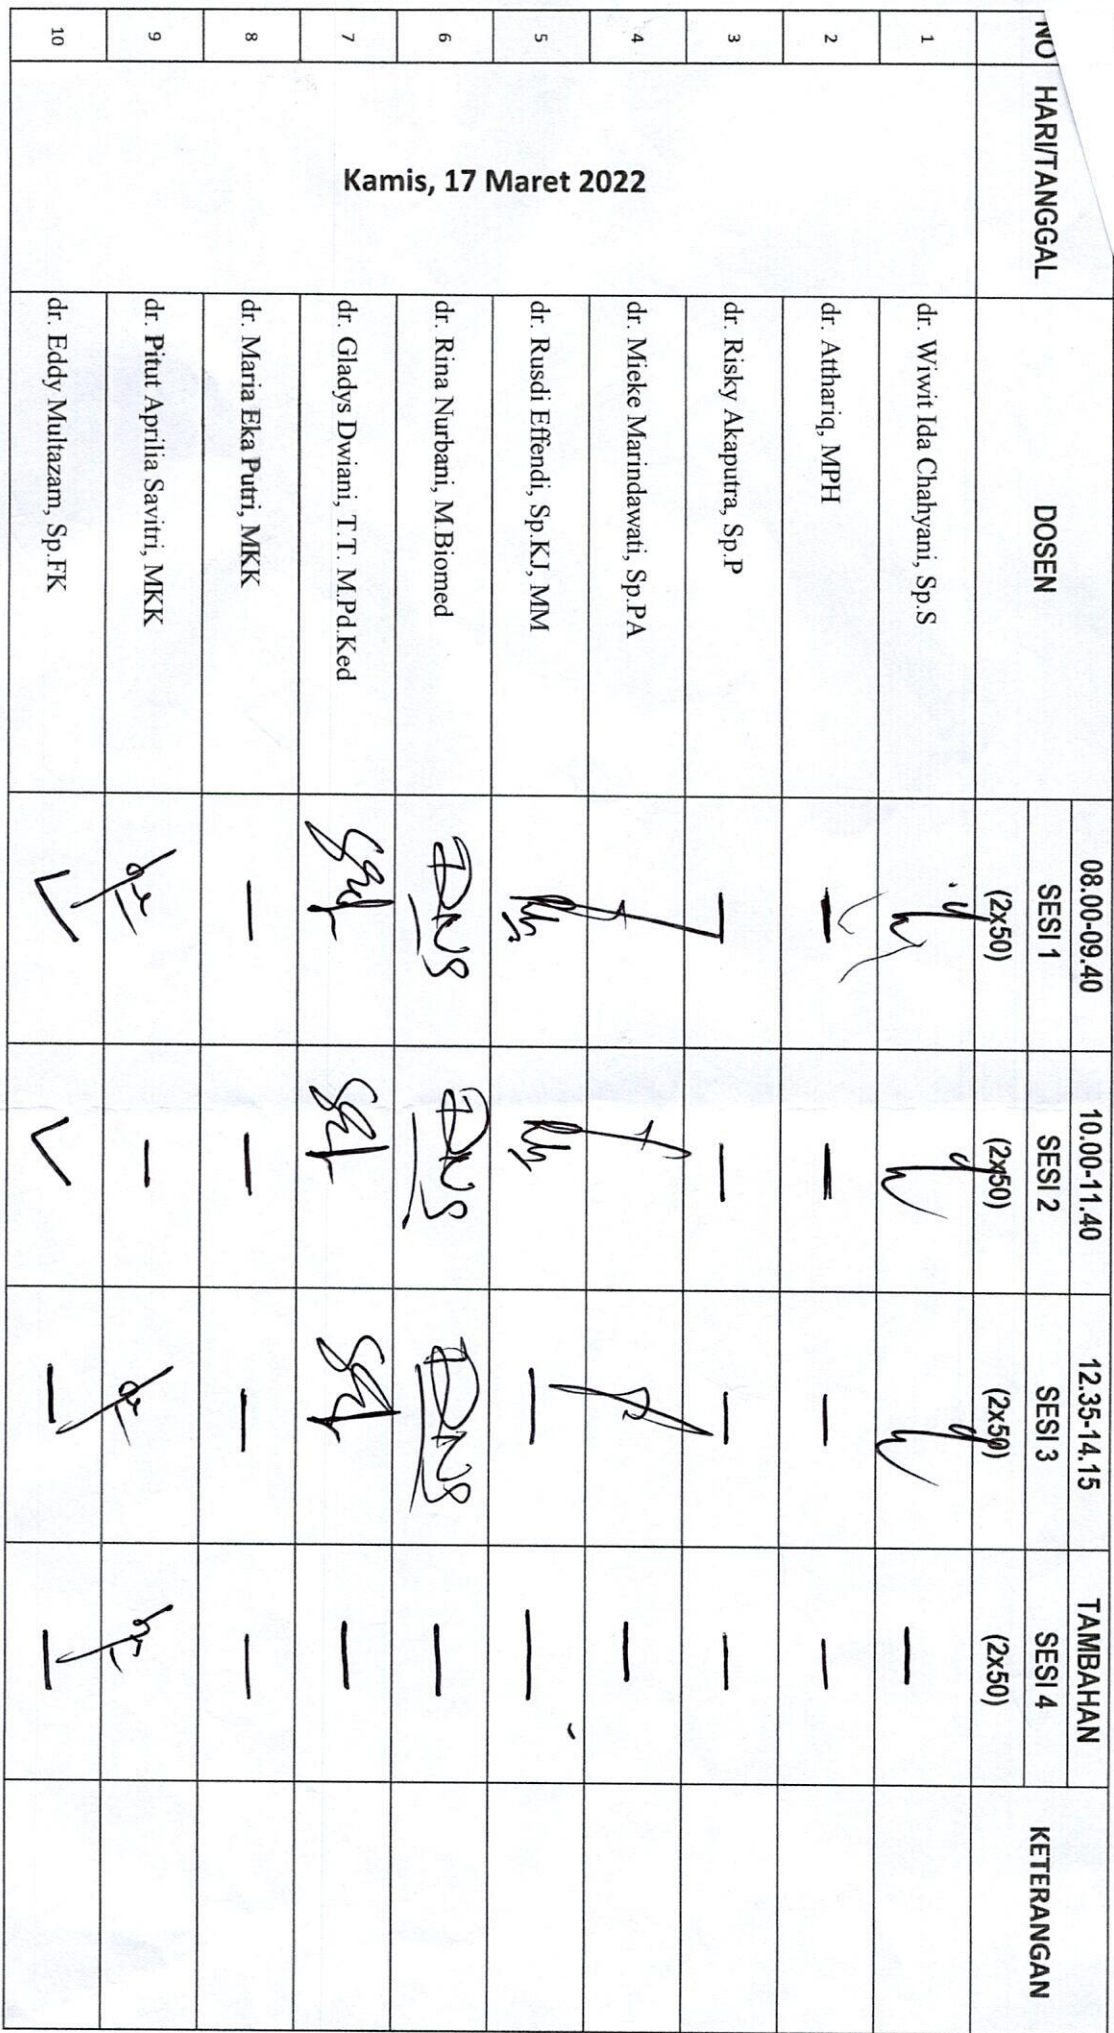 NO HARI/TANGGAL DOSEN 08.00-09.40 10.00-11.40 12.35-14.15 TAMBAHAN KETERANGAN
SESI 1 SESI 2 SESI 3 SESI 4
(2x50) (2x50) (2x50) (2x50)
Kamis, 17 Maret 2022
1 dr. Wiwit Ida Chahyani, Sp.S
2 dr. Atthariq, MPH — — — —
3 dr. Risky Akaputra, Sp.P — — — —
4 dr. Mieke Marindawati, Sp.PA —
5 dr. Rusdi Effendi, Sp.KJ, MM — —
6 dr. Rina Nurbani, M.Biomed —
7 dr. Gladys Dwiani, T.T. M.Pd.Ked —
8 dr. Maria Eka Putri, MKK — — — —
9 dr. Pitut Aprilia Savitri, MKK —
10 dr. Eddy Multazam, Sp.FK — —